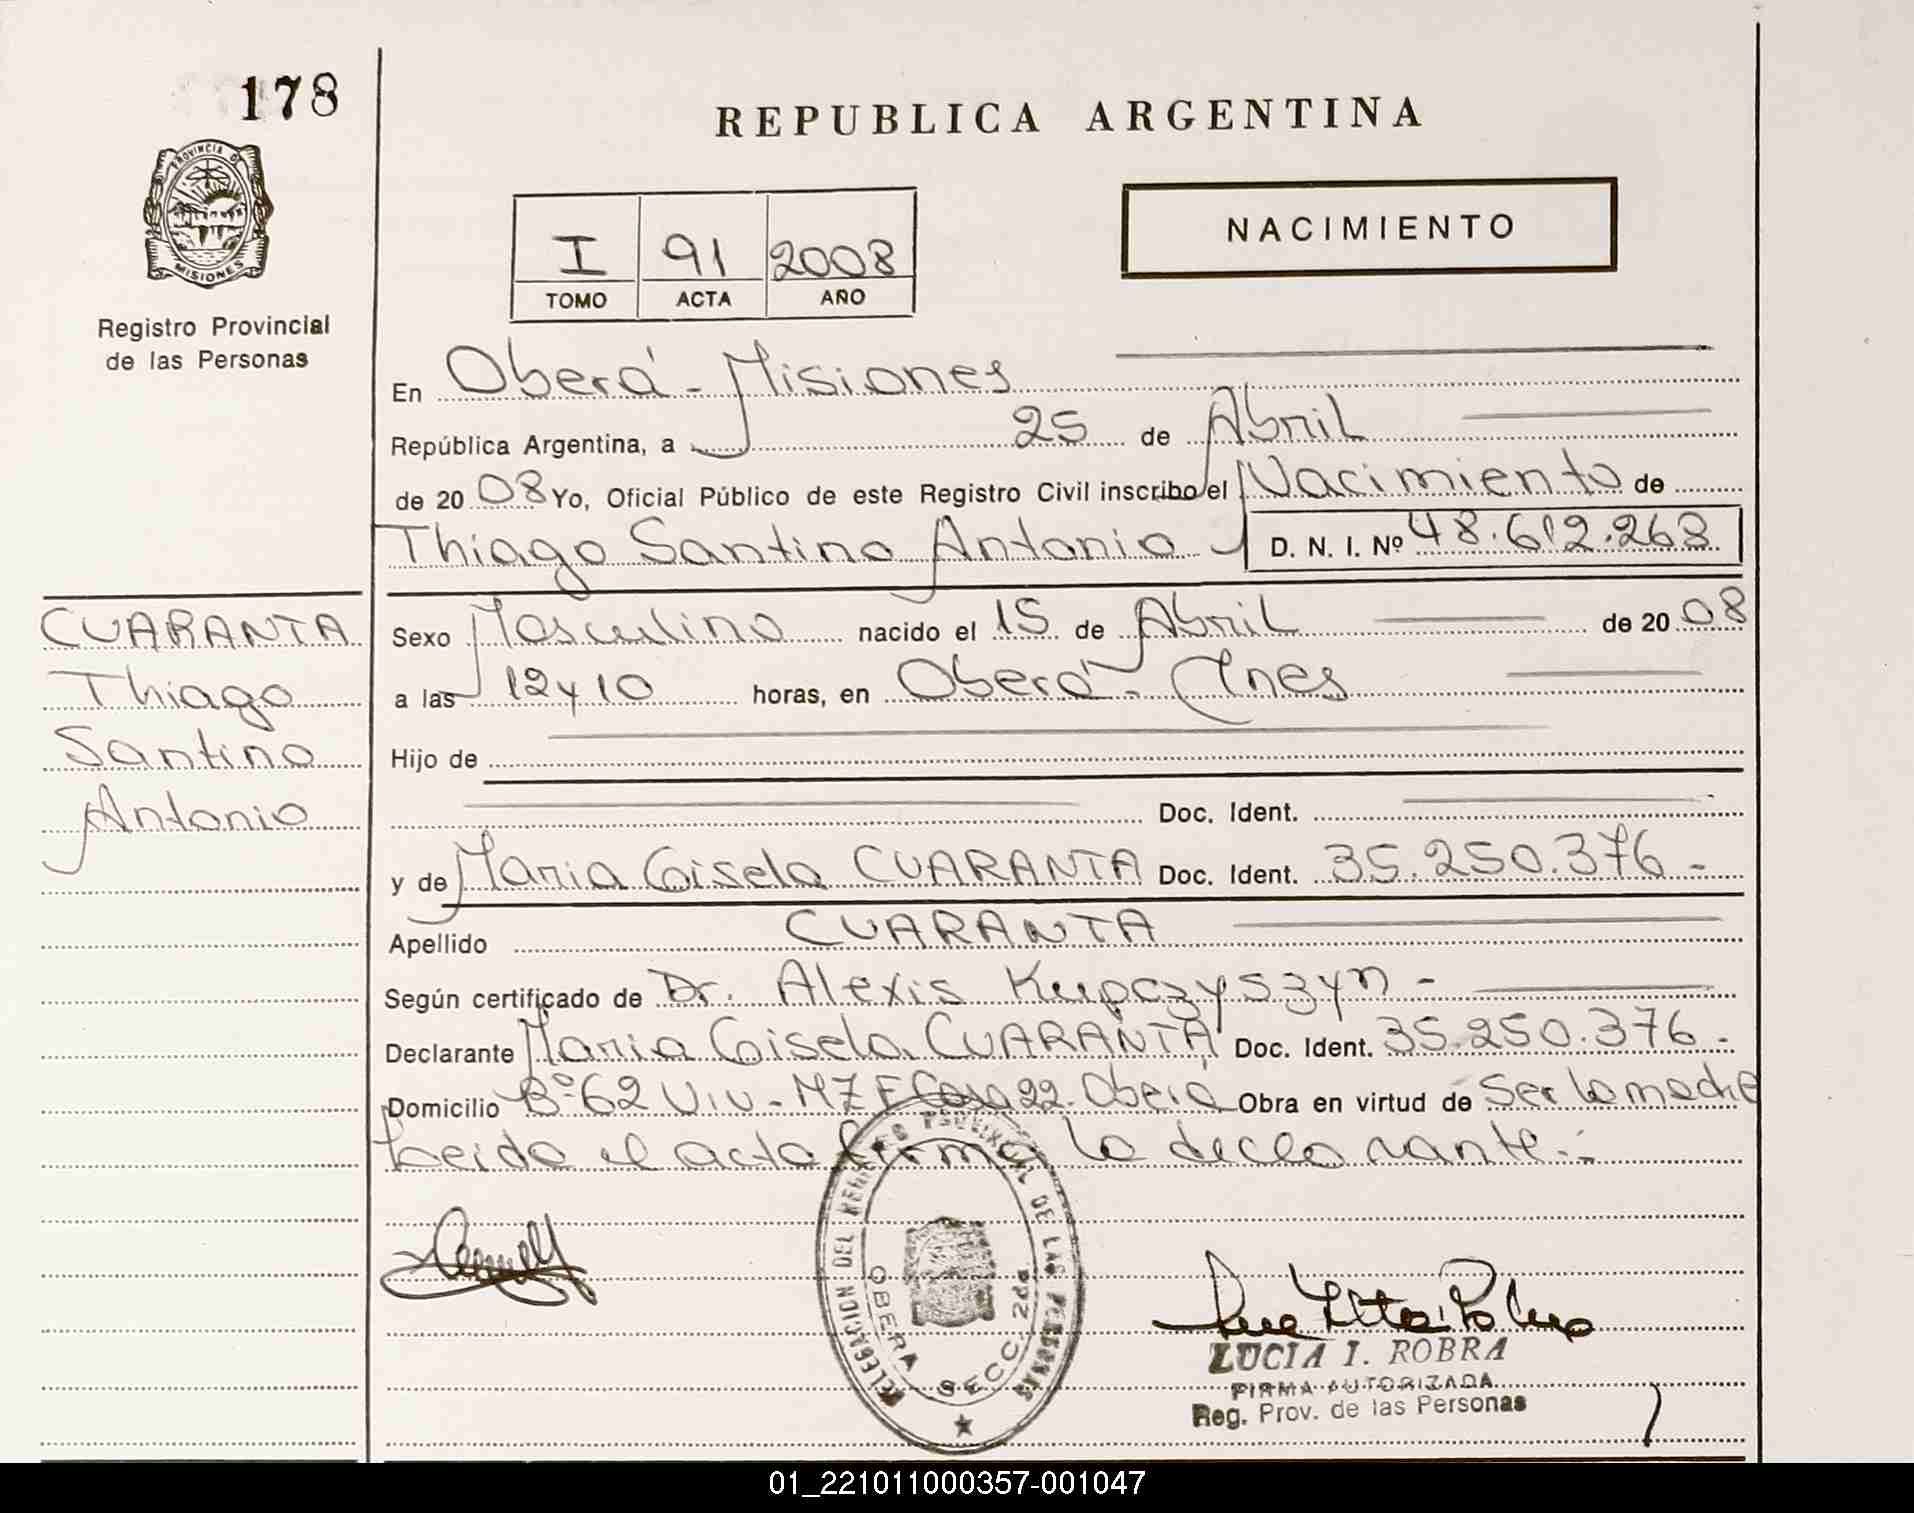 178
REPUBLICA ARGENTINA
PROVINCIA D
MISIONES
NACIMIENTO
I 91 2008
TOMO ACTA AÑO
Registro Provincial
de las Personas
En Oberá - Misiones
República Argentina, a 25 de Abril
de 20 08 Yo, Oficial Público de este Registro Civil inscribo el Nacimiento de
Thiago Santino Antonio D. N. I. Nº 48.612.268
CUARANTA
Thiago
Santino
Antonio
Sexo Masculino nacido el 15 de Abril de 20 08
a las 12 y 10 horas, en Oberá -
Hijo de
Doc. Ident.
y de Maria Gisela CUARANTA Doc. Ident. 35.250.376 -
Apellido CUARANTA
Según certificado de Dr. Alexis Kupczyszyn -
Declarante Maria Gisela CUARANTA Doc. Ident. 35.250.376 -
Domicilio Bº 62 Viv - MZ F Casa 22 - Oberá Obra en virtud de Ser la madre
Leida el acta firma la declarante.-
DELEGACION DEL REGISTRO PROVINCIAL DE LAS PERSONAS
OBERA SECC. 2da
LUCIA I. ROBRA
FIRMA AUTORIZADA
Reg. Prov. de las Personas
01_221011000357-001047